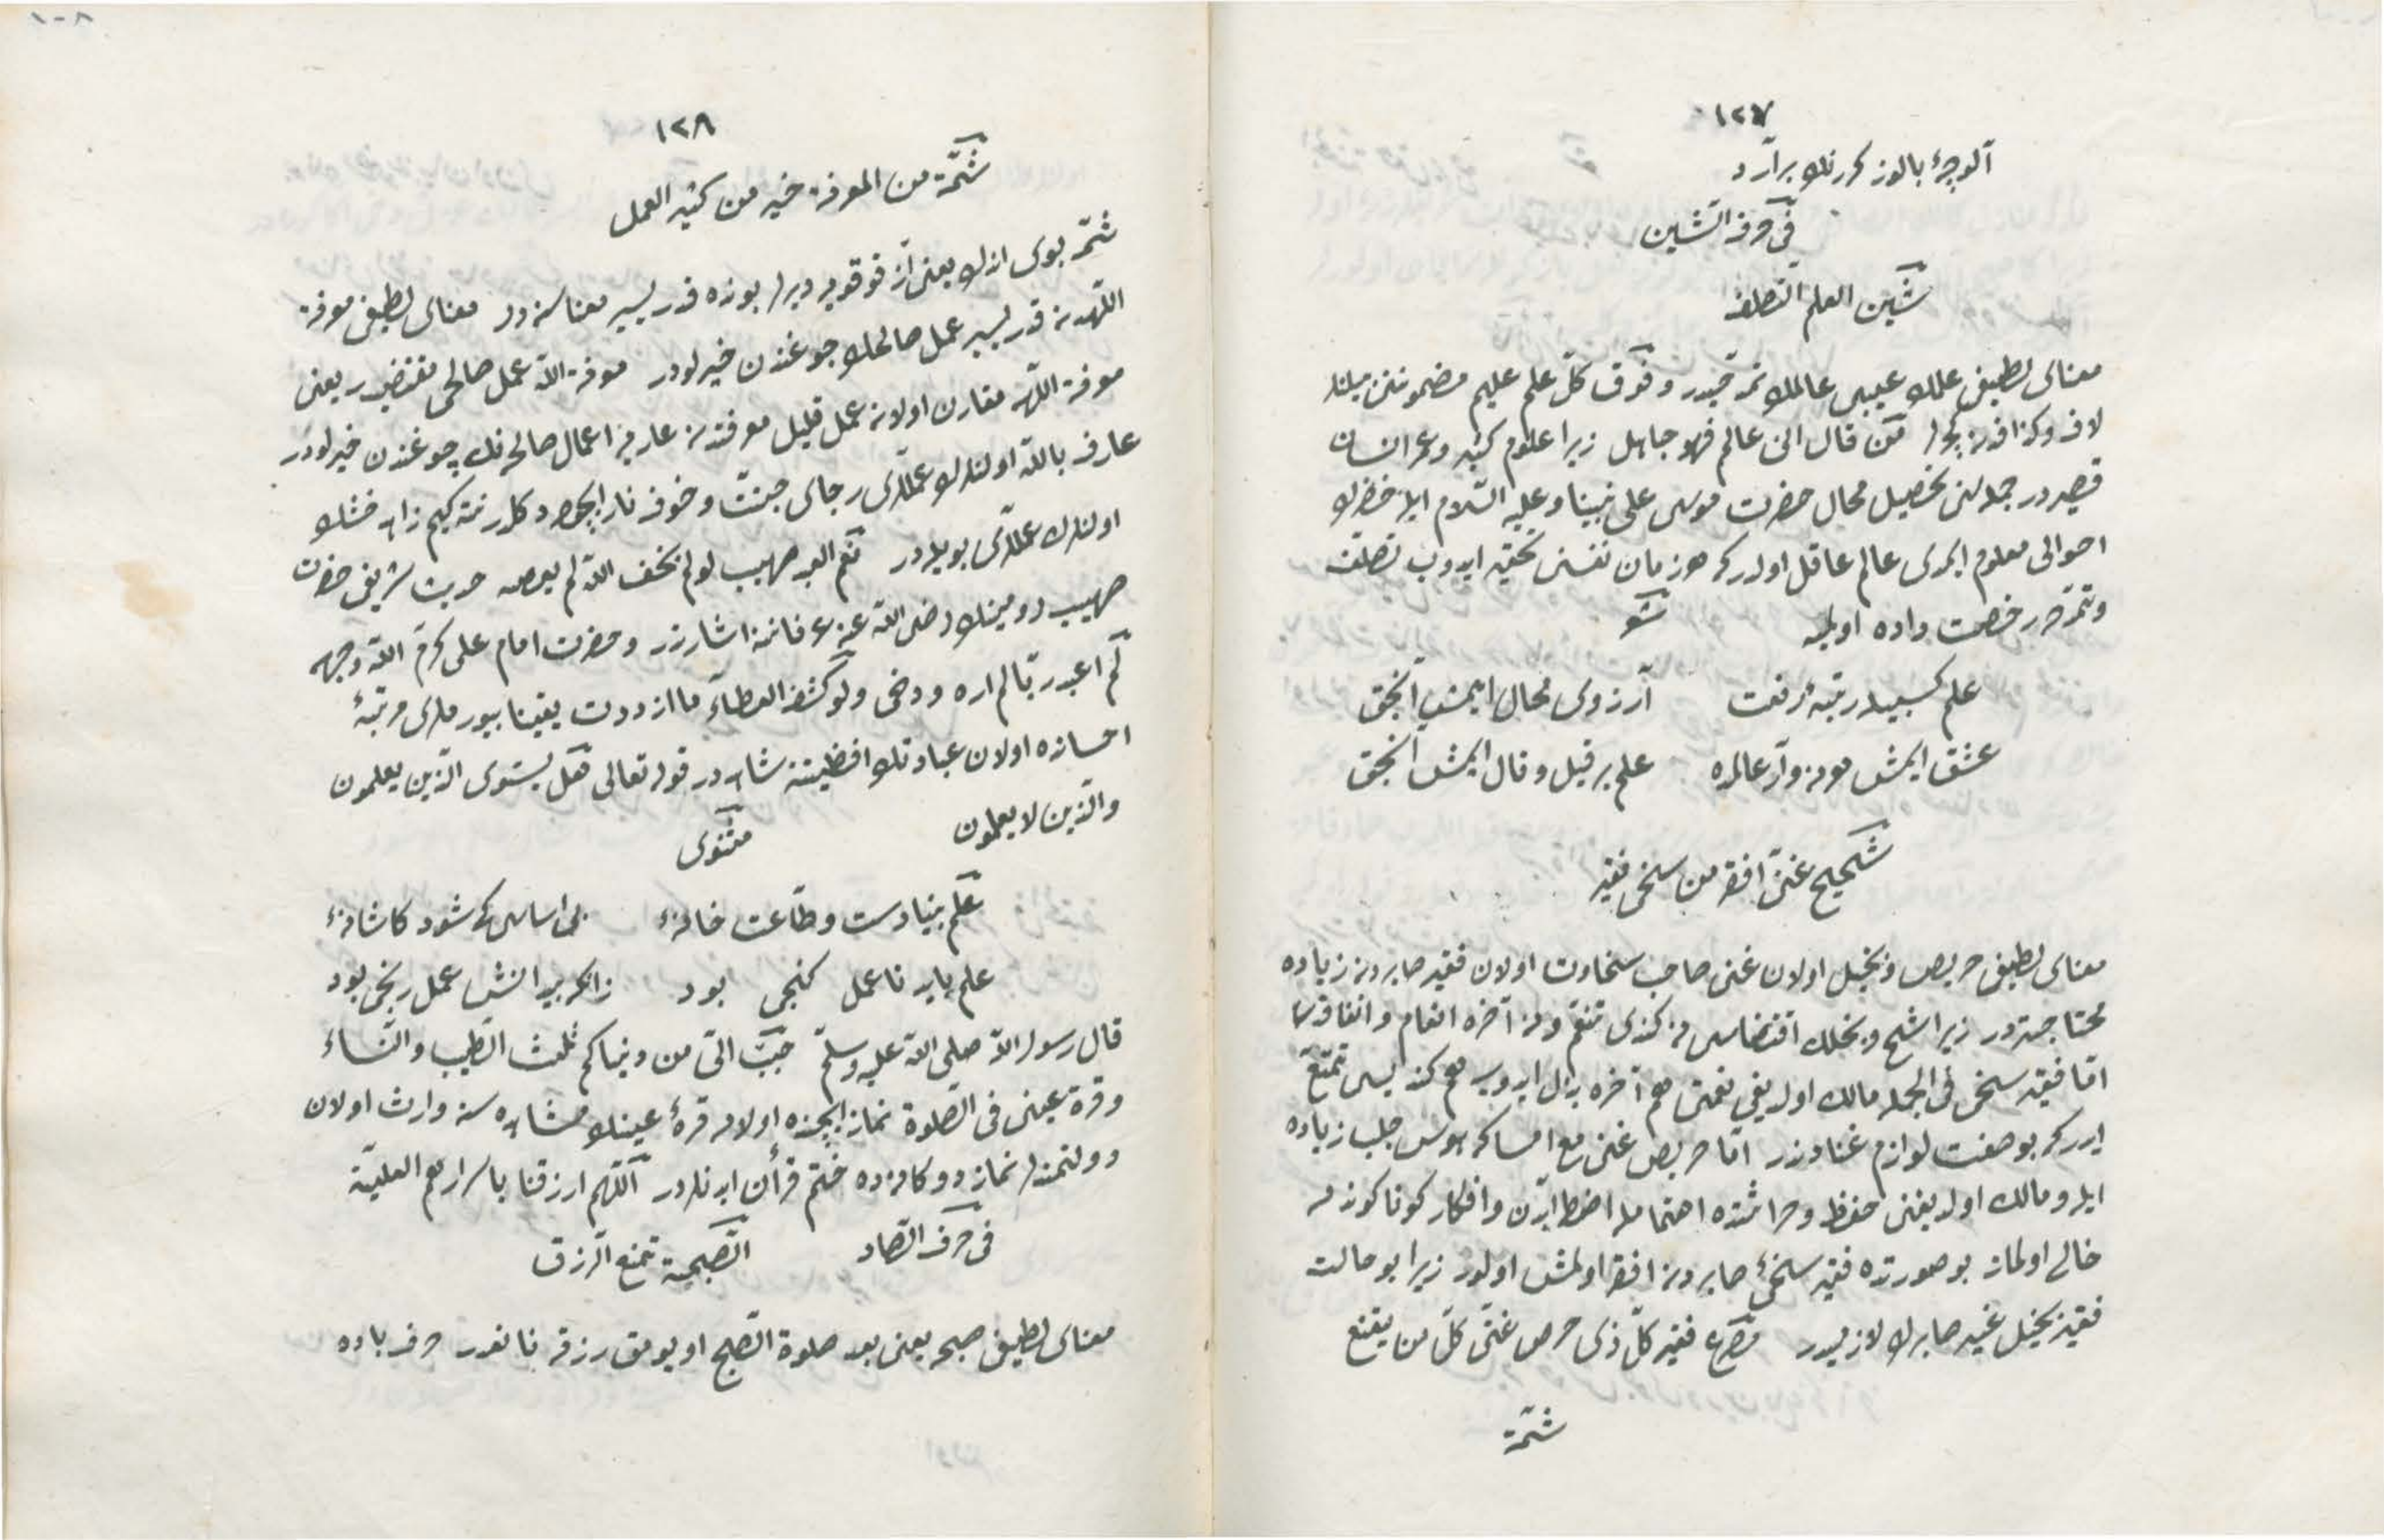 ١٢٧
آلوچۀ بالوز کر رنك بر آرد
فی حرف الشین
شین العلم الصلف
معنای لطیفی علمك عیبی عالمك تمدحیدر و فوق کل علم علیم مضموننی بیلنلر
لاف و کزافدن کچر من قال انی عالم فهو جاهل زیرا علوم کثیر و عمر انسان
قصیردر جمله‌سنی تحصیل محال حضرت موسی علی نبینا و علیه السلام ایله خضرك
احوالی معلوم ایمدی عالم عاقل اولدر که هر زمان نفسنی تحقیر ایدوب تصلف
و تمدحه رخصت داده اولمیه شعر
علم کسبیله رتبۀ رفعت آرزوی محال ایمش آنجق
عشق ایمش هر نه وار عالمده علم بر قیل و قال ایمش آنجق
شحیح غنی افقر من سخی فقیر
معنای لطیفی حریص و بخیل اولان غنی صاحب سخاوت اولان فقیر صابردن زیاده
محتاجدر زیرا شح و بخلك اقتضاسی نه کندی تنعم و نه آخره انعام و انفاقدر
اما فقیر سخی فی الجمله مالك اولدیغی نعمتی هم آخره بذل ایدوب هم کندیسی تمتع
ایدر که بو صفت لوازم غنادندر اما حریص غنی مع امساك هوس جلب زیاده
ایله و مالك اولدیغنی حفظ و حراثتده اهتمامله اضطرابدن و افکار کوناکوندن
خالی اولماز بو صورتده فقیر سخئ صابردن افقر اولمش اولور زیرا بو حالت
فقیر بخیل غیر صابرك لازمیدر مصرع فقیر کل ذی حرص غنی کل من یقنع
شمة
١٢٨
شمة من المعرفة خیر من کثیر العمل
شمه بوی ازلك یعنی آز قوقویه دیرلر بوراده قدر یسیر معناسنه‌در معنای لطیفی معرفة
اللهدن قدر یسیر عمل صالحك چوغندن خیرلودر معرفة الله عمل صالحی مقتضیدر یعنی
معرفة اللهه مقارن اولان عمل قلیل معرفتدن عاری اعمال صالحه‌نك چوغندن خیرلودر
عارف بالله اولنلرك عمللری رجای جنت و خوف نار ایچون دکلدر نته کیم زاهد خشك
اولنلرك عمللری بویله‌در نعم العبد صهیب لو لم یخف الله لم یعصه حدیث شریفی حضرت
صهیب رومینك رضی الله عنه عرفاننه اشارتدر و حضرت امام علی کرم الله وجهه
لم اعبد ربا لم اره و دخی ولو کشف الغطاء ما ازددت یقینا بیوردملری مرتبۀ
احسانده اولان عبادتك افضلیتنه شاهددر قوله تعالی هل یستوی الذین یعلمون
والذین لا یعلمون مثنوی
علم بنیادست و طاعت خانۀ بی اساس کی شود کاشانۀ
علم باید تا عمل کنجی بود زانکه بیدانش عمل رنجی بود
قال رسول الله صلی الله علیه وسلم حبب الی من دنیاکم ثلث الطیب والنساء
وقرة عینی فی الصلوة نماز ایچنده اولان قرۀ عینك مشاهده‌سنه وارث اولان
دولتمندلر نماز دوکانه‌ده ختم قرآن ایدنلردر اللهم ارزقنا باسرارهم العلیة
فی حرف الصاد الصبحة تمنع الرزق
معنای لطیفی صبحه یعنی بعد صلوة الصبح اویومق رزقه مانعدر حرف باده